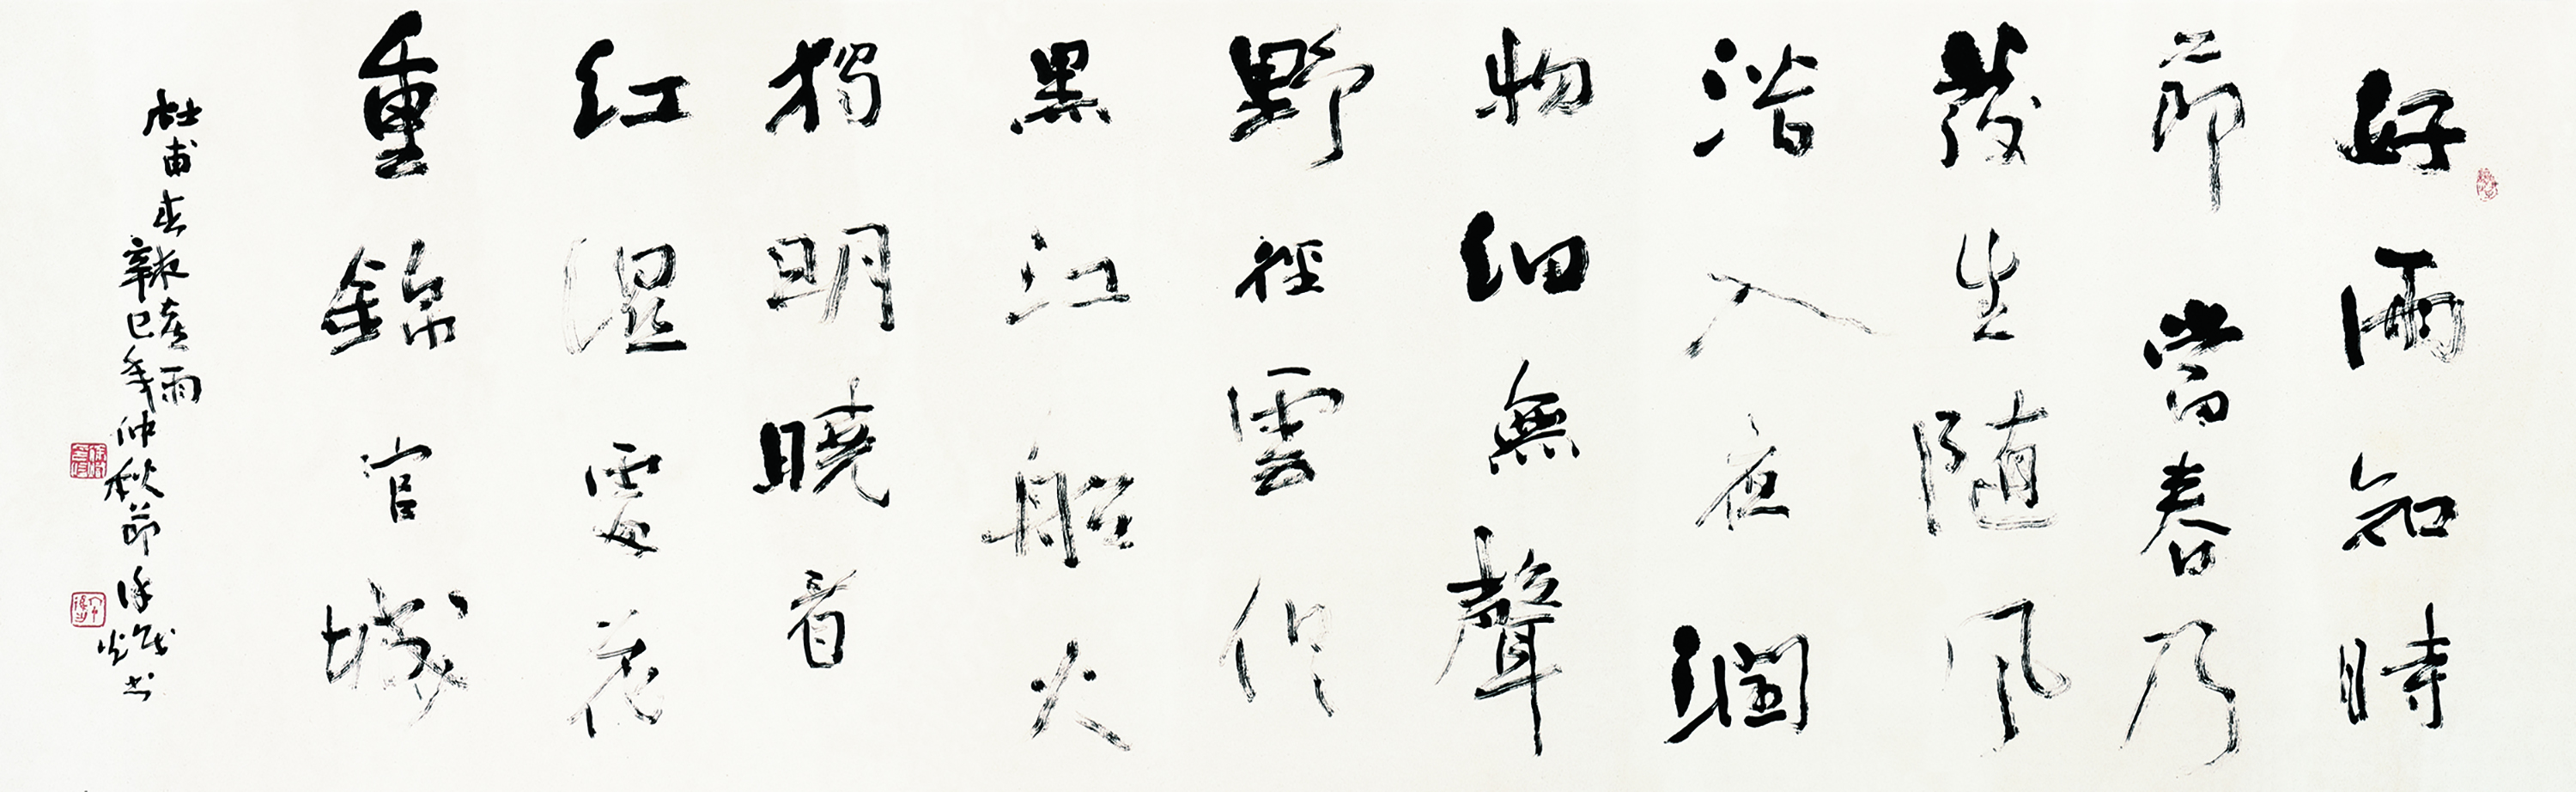 好雨知時
節當春乃
發生随風
潜入夜潤
物細無聲
野徑雲俱
黑江船火
獨明曉看
紅湿處花
重錦官城
杜甫春夜喜雨
辛巳年仲秋節徐书